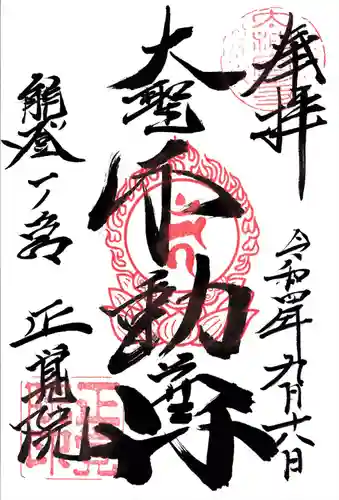 奉拝
令和四年九月十六日
大聖不動尊
能登一ノ宮
正覚院